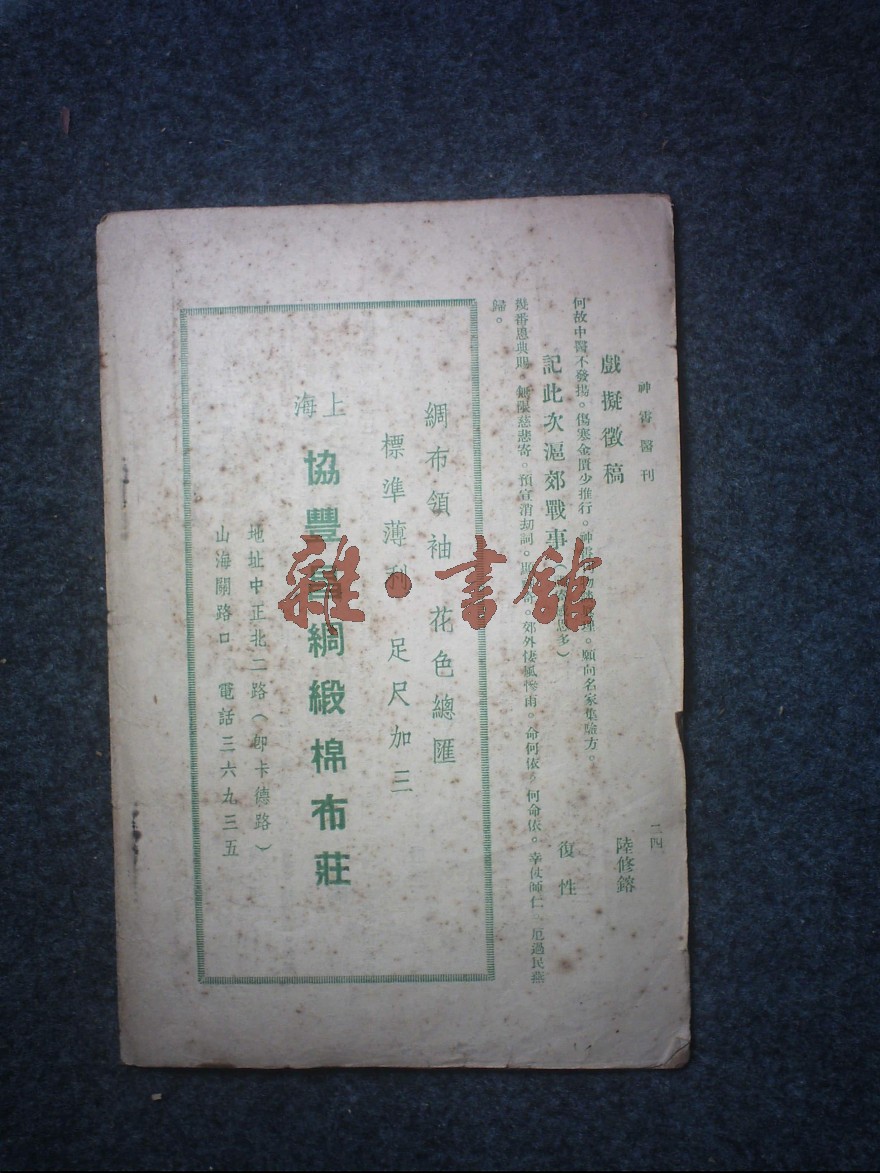 神霄醫刊
二四
戲擬徵稿
陸修鎔
何故中醫不發揚。傷寒金匱少推行。神霄
願向名家集驗方。
記此次滬郊戰事
多)
復性
幾番恩典賜。無限慈悲寄。預宣消劫詞。
郊外悽風慘雨。命何依。何命依。幸仗師仁
厄過民燕
歸。
綢布領袖 花色總匯
標準薄利 足尺加三
上海
協豐昌綢緞棉布莊
地址中正北二路(即卡德路)
山海關路口 電話三六九三五
雜·書館